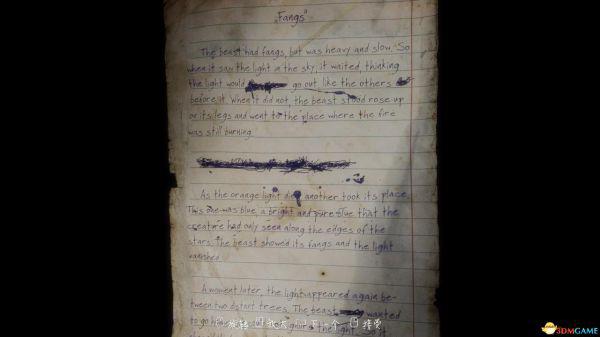 „Fangs"
The beast had fangs, but was heavy and slow. So
when it saw the light in the sky, it waited, thinking
the light would go out like the others
before it. When it did not, the beast stood rose up
on its legs and went to the place where the fire
was still burning.
As the orange light died another took its place.
This one was blue, a bright and pure blue that the
creature had only seen along the edges of the
stars. The beast showed its fangs and the light
vanished.
A moment later, the light appeared again be-
tween two distant trees. The beast wanted
to go
the light. So it
旋转 放大 下一个 接受
3DMGAME